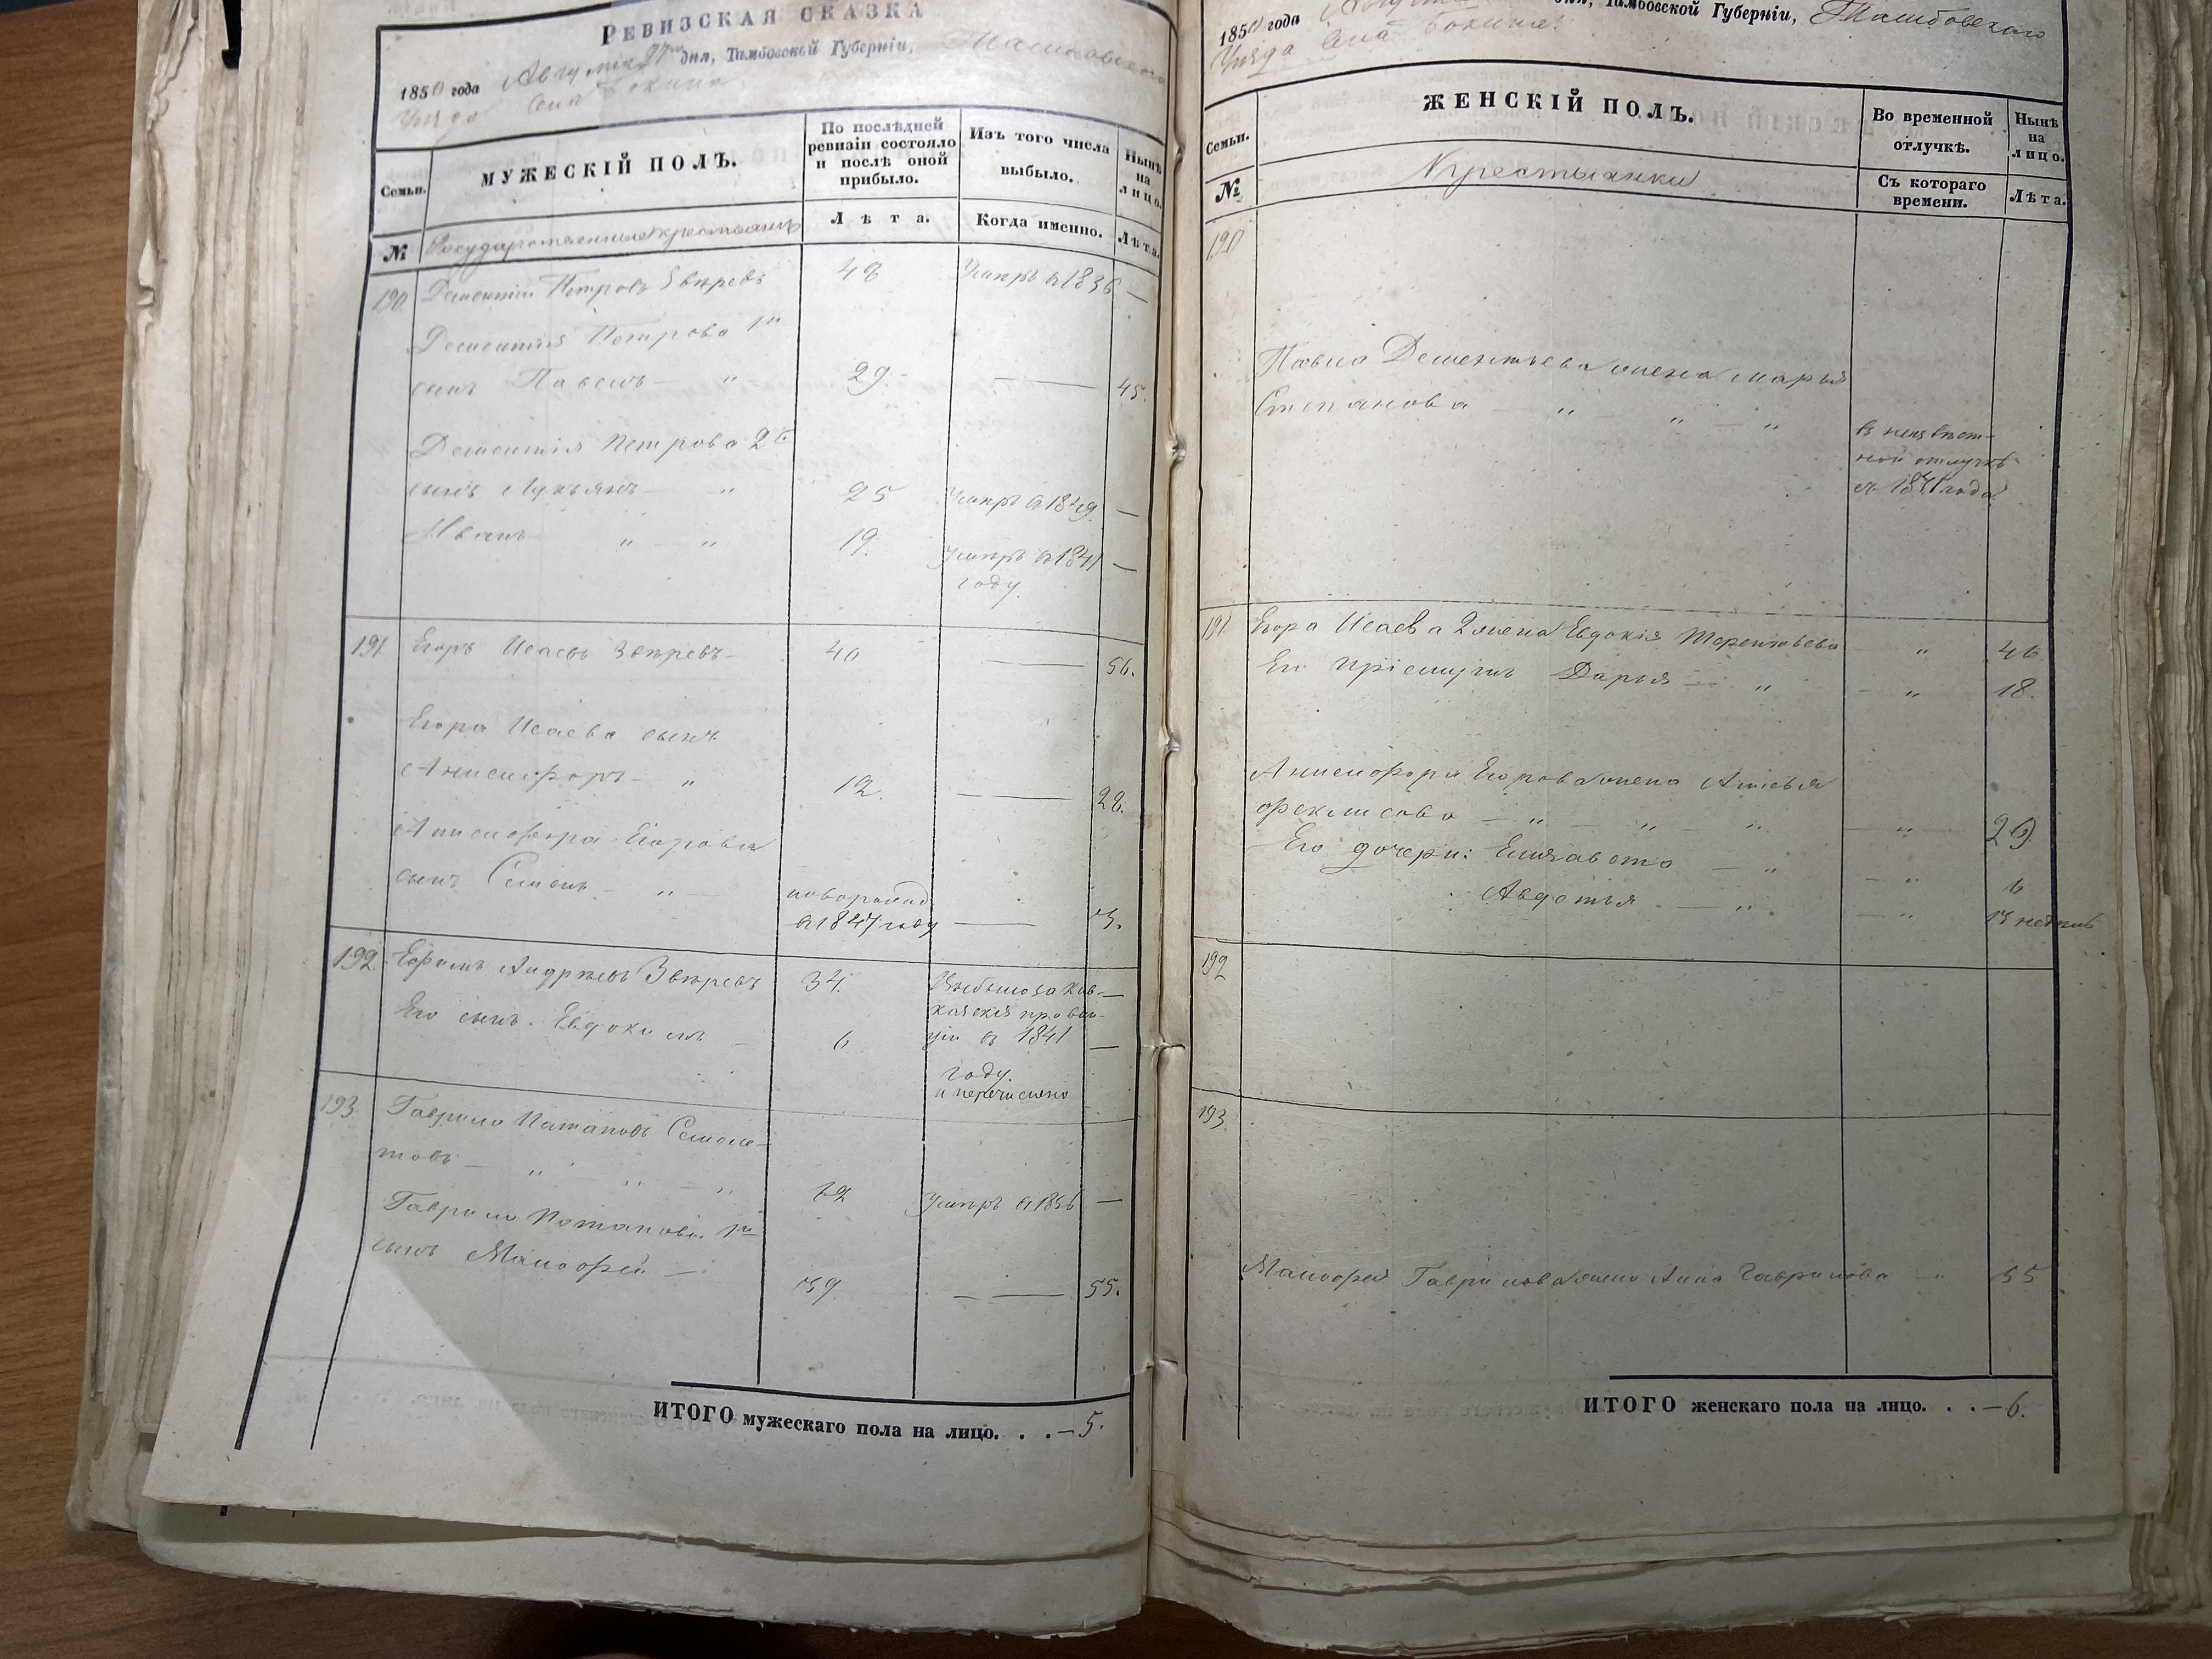 РЕВИЗСКАЯ СКАЗКА
1850 года Августа 27го дня, Тамбовской Губерніи, Тамбовскаго
Уезда Села Бокина
Семьи.
МУЖЕСКІЙ ПОЛЪ.
По послѣдней ревизіи состояло и послѣ оной прибыло.
Изъ того числа выбыло.
Нынѣ на лицо.
№
Государственные крестьянъ
Лѣта.
Когда именно.
Лѣта.
190 Дементій Петровъ Звѣревъ 48 Умеръ в 1836 —
Дементія Петрова 1й
сынъ Павелъ — " 29. — 45.
Дементія Петрова 2й
сынъ Лукъянъ — " 25 Умеръ в 1849 —
Иванъ " — " 19. Умеръ в 1841 —
году.
191 Егоръ Исаевъ Звѣревъ — 40 — 56.
Егора Исаева сынъ
Анисифоръ — " 12. — 28.
Анисифора Егорова
сынъ Семенъ — " — новорожд
в 1847 году — 3.
192 Ефимъ Андрѣевъ Звѣревъ 34. —
Его сынъ Евдокимъ — 6 1841 —
году.
и перечислено
193 Гаврило Потаповъ
" — " — " 62 Умеръ в 1836 —
Гаврилы Потапова 1й
сынъ Маифей — 39. — 55.
ИТОГО мужескаго пола на лицо. . . — 5.
1850 года Августа дня, Тамбовской Губерніи, Тамбовскаго
Уезда Села Бокина.
Семьи.
ЖЕНСКІЙ ПОЛЪ.
Во временной отлучкѣ.
Нынѣ на лицо.
№
Крестьянки
Съ котораго времени.
Лѣта.
190
Павла Дементьева жена Марья
Степанова — " — " — "
в неизвѣст-
ной отлучкѣ
съ 1841 года
191 Егора Исаева 2 жена Евдокія Терентьева " 46
Его пріемушъ Дарья — " — " 18.
Анисифора Егорова жена
Феклисова — " — " — " — " — 29
Его дочери: Елизавета — " — " 6
Авдотья — " — "
192
193
Маифея Гаврилова жена Анна Гаврилова — " 55
ИТОГО женскаго пола на лицо. . . — 6.